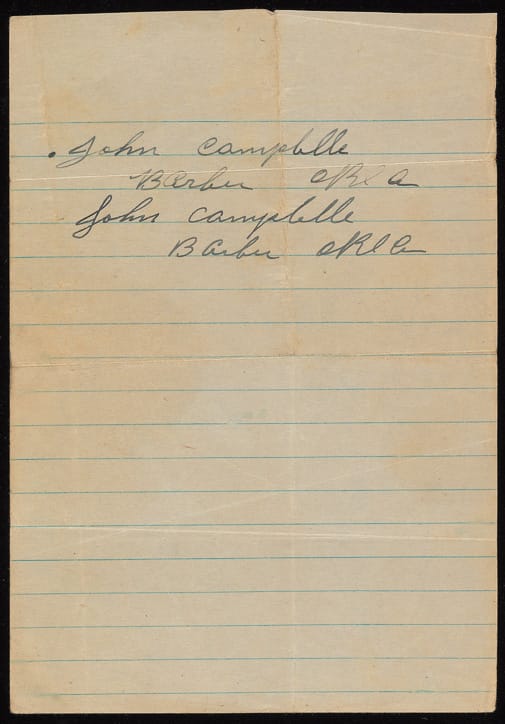 John Campblle
Barber okla
John Campblle
Barber okla